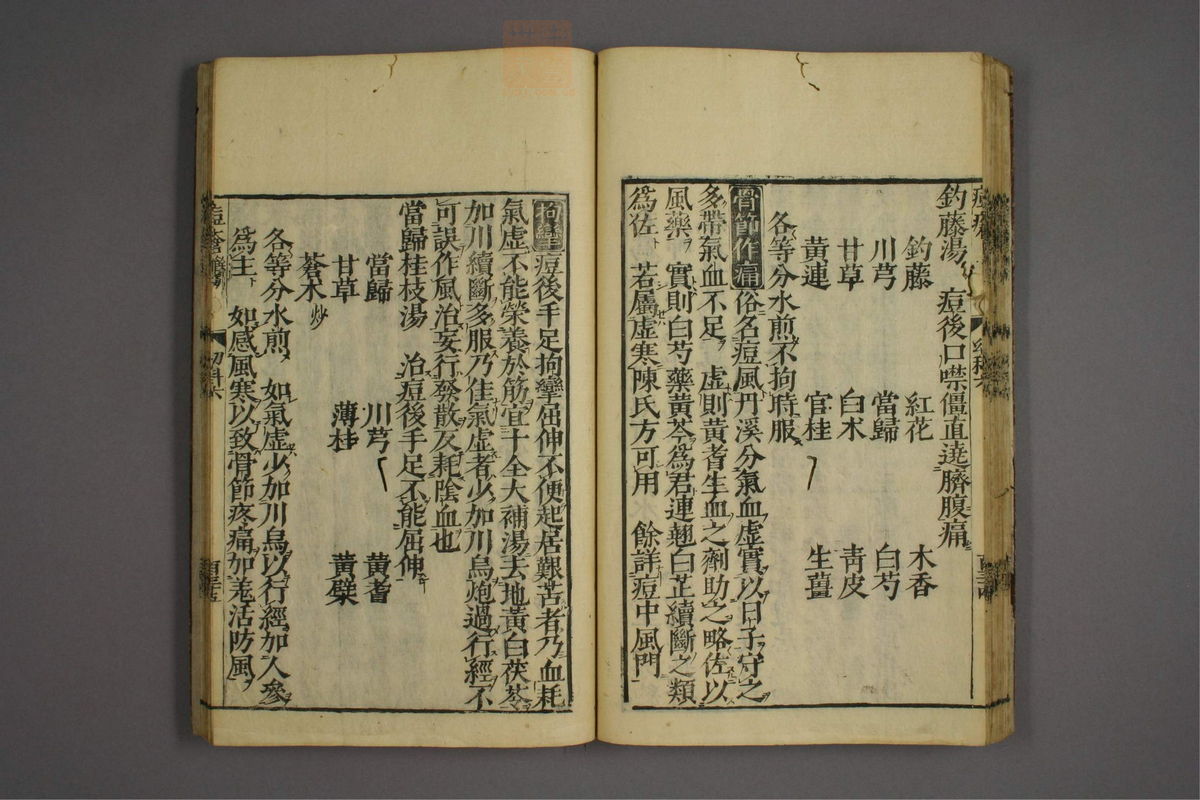 釣藤湯 痘後口噤僵直遶臍腹痛
釣藤 紅花 木香
川芎 當歸 白芍
甘草 白朮 靑皮
黃連 官桂 生薑
各等分水煎不拘時服
骨節作痛 俗名痘風丹溪分氣血虛實以日子守之
多帶氣血不足虛則黃耆生血之劑助之略佐以
風藥 實則白芍藥黃芩爲君連翹白芷續斷之類
爲佐 若屬虛寒陳氏方可用 餘詳痘中風門
拘攣 痘後手足拘攣屈伸不便起居艱苦者乃血耗
氣虛不能榮養於筋宜十全大補湯去地黃白茯苓
加川續斷多服乃佳氣虛者少加川烏炮過行經不
可誤作風治妄行發散反耗陰血也
當歸桂枝湯 治痘後手足不能屈伸
當歸 川芎 黃耆
甘草 薄桂 黃檗
蒼朮炒
各等分水煎 如氣虛少加川烏以行經加人參
爲主 如感風寒以致骨節疼痛加羌活防風